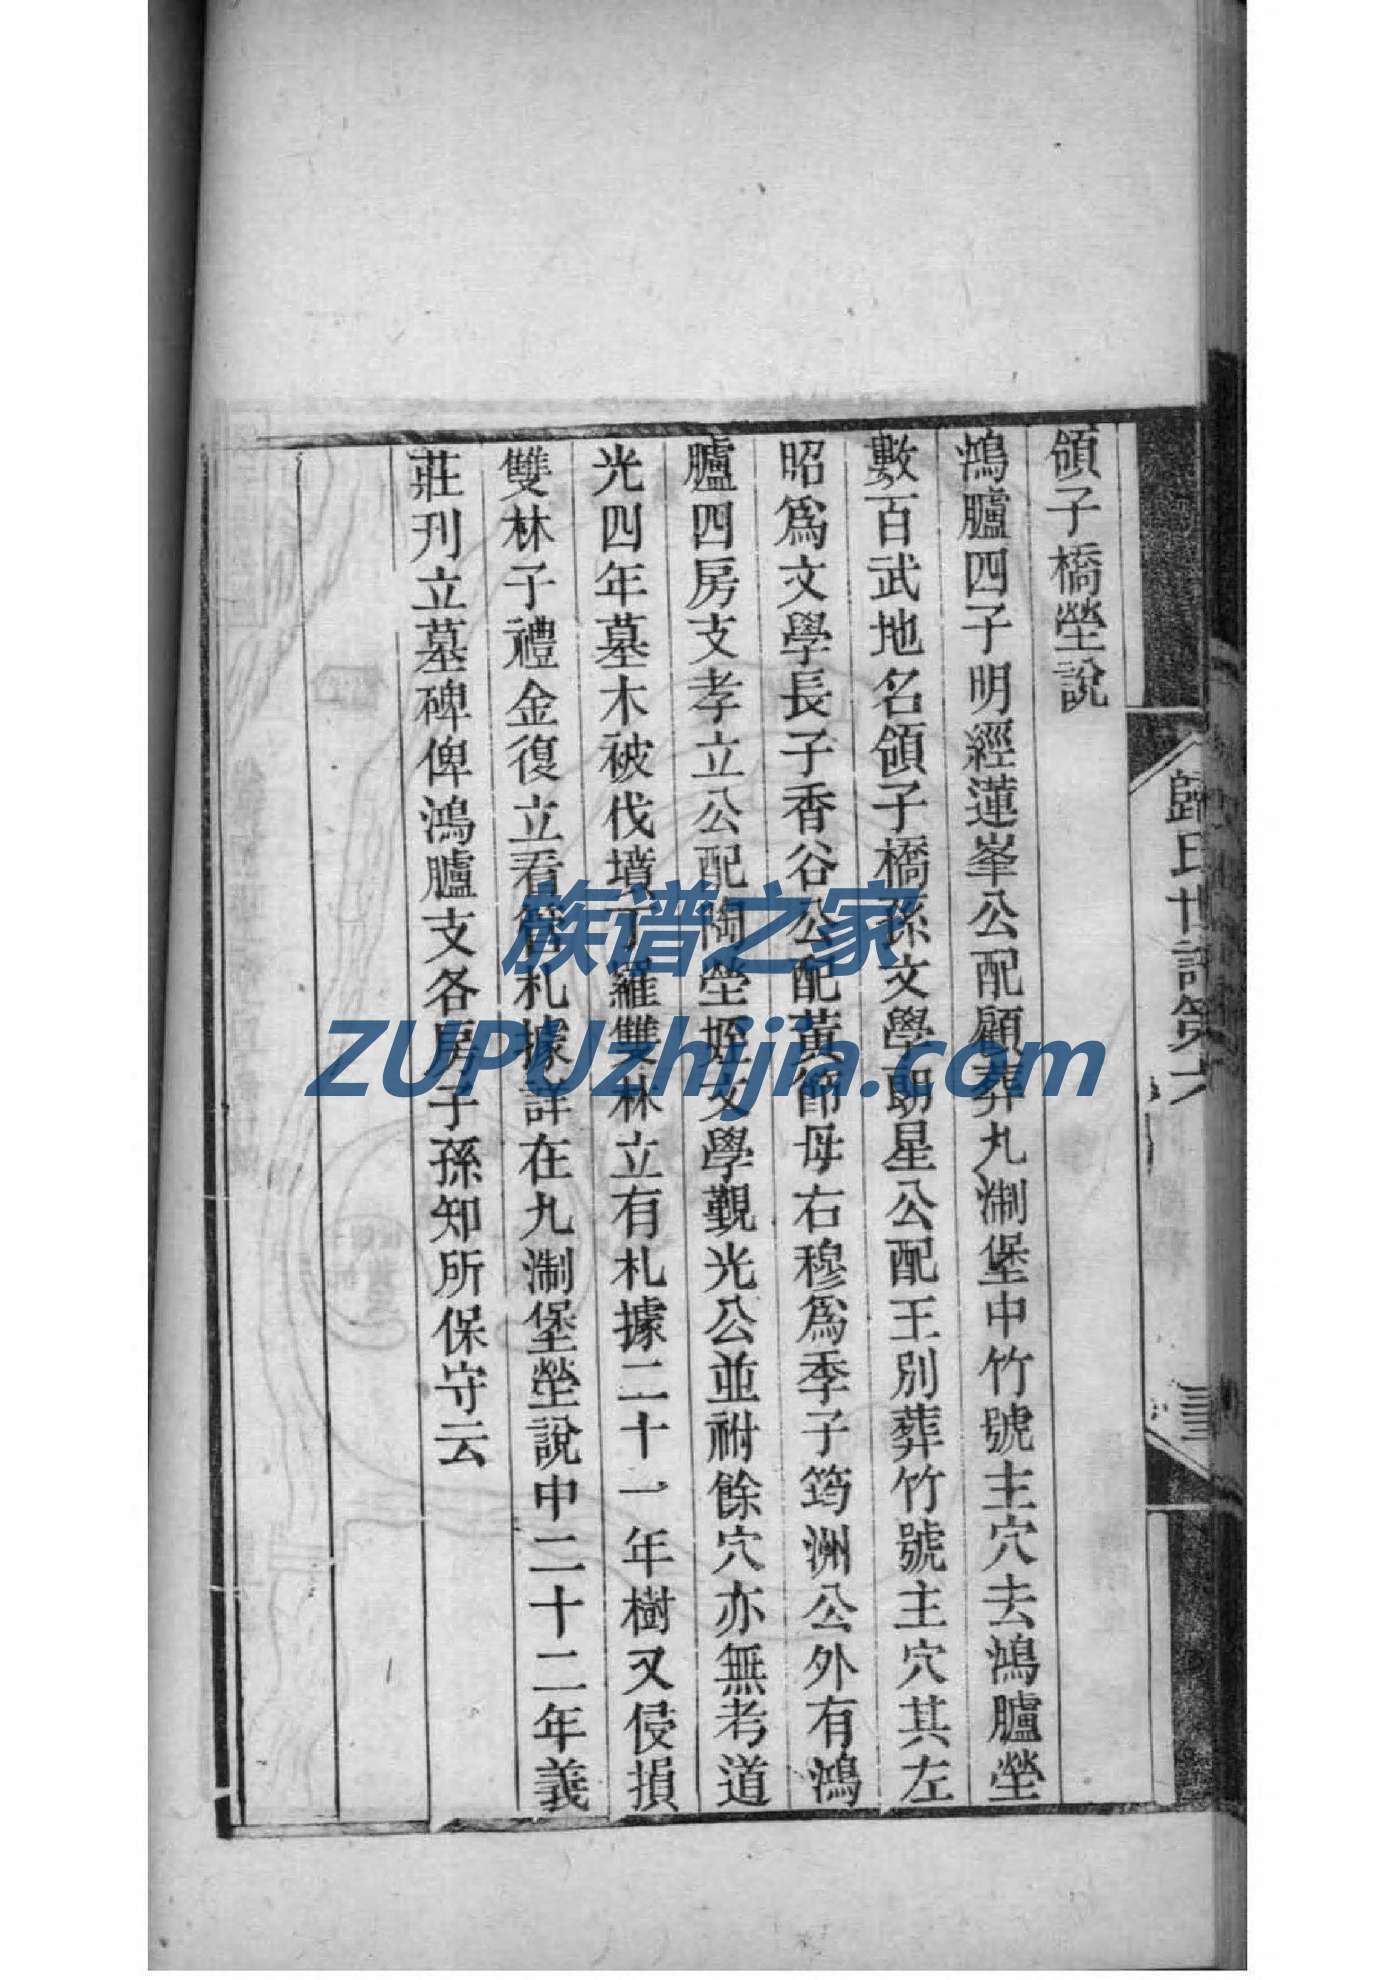 領子橋塋說
鴻臚四子明經蓮峯公配顧葬九淛堡中竹號主穴去鴻臚塋
數百武地名領子橋孫文學勖星公配王別葬竹號主穴其左
昭爲文學長子香谷公配黃節母右穆爲季子筠洲公外有鴻
臚四房支孝立公配陶塋姪文學觀光公並祔餘穴亦無考道
光四年墓木被伐墳丁羅雙林立有札據二十一年樹又侵損
雙林子禮金復立看管札據詳在九淛堡塋說中二十二年義
莊刊立墓碑俾鴻臚支各房子孫知所保守云
歸氏世譜第六
族谱之家
ZUPUzhijia.com